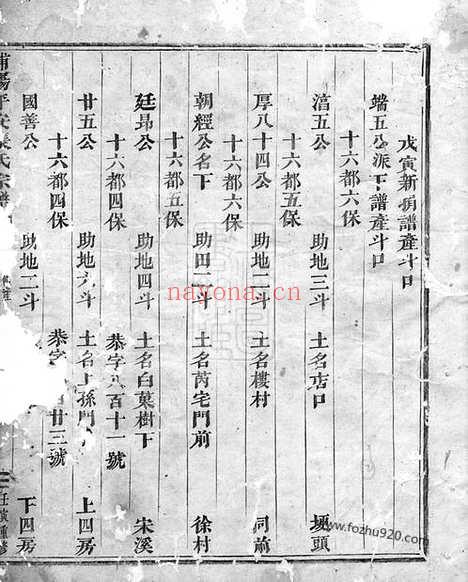 戊寅新捐譜產斗口
端五公派下譜產斗口
十六都六保
滈五公 助地三斗 土名店口 塸頭
十六都六保
厚八十四公 助地二斗 土名樓村 同前
十六都五保
朝經公名下 助田二斗 土名芮宅門前 徐村
十六都四保 恭字 百十一號
廷昻公 助地四斗 土名白菓樹下 宋溪
十六都四保
廿五公 助地六斗 土名上孫門 上四房
十六都四保 恭字 廿三號
國善公 助地二斗 下四房
浦陽平安張氏宗譜
戊寅重修
nayona.cn
www.fozhu920.com